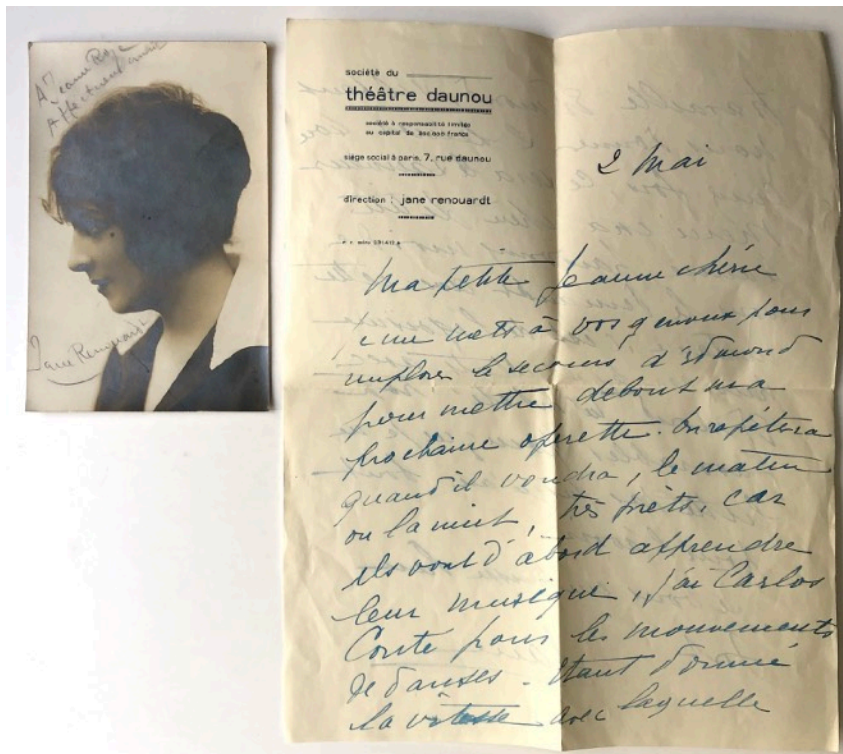 A Jeanne
Affectueusement
Jane Renouardt
société du
théâtre daunou
société à responsabilité limitée
au capital de francs
siège social à paris, 7, rue daunou
direction : jane renouardt
2 Mai
Ma petite Jeanne chérie
je me mets à vos genoux pour
implorer le secours d'Edmond
pour mettre debout ma
prochaine operette. On répètera
quand il voudra, le matin
ou la nuit, très prêts, car
ils vont d'abord apprendre
leur musique, j'ai Carlos
Conte pour les mouvements
de danses - étant donné
la vitesse avec laquelle